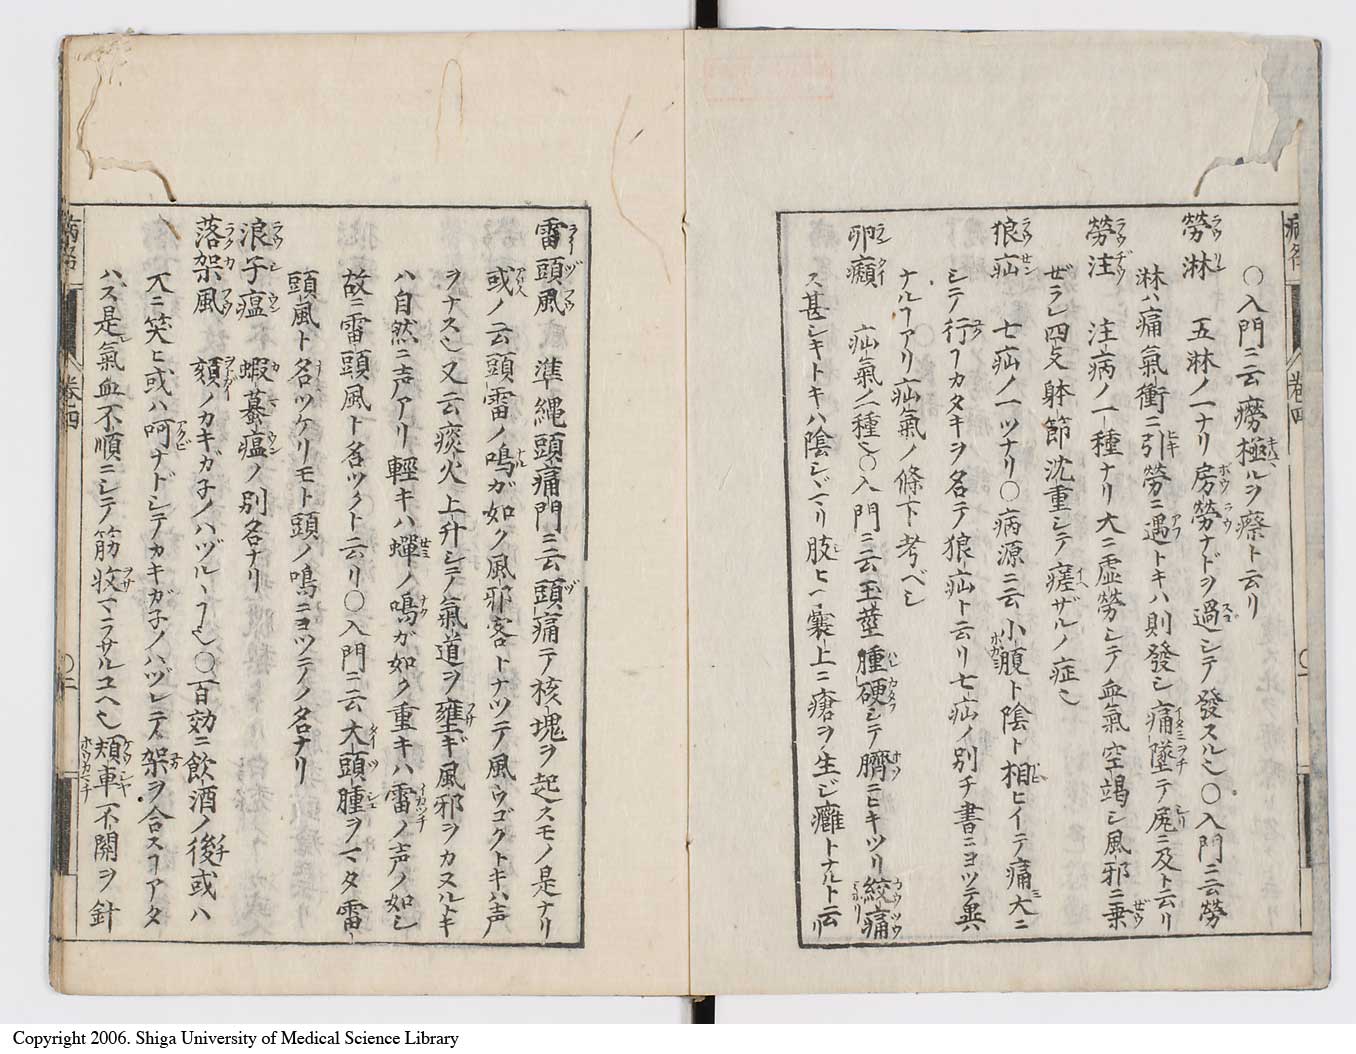 〇入門ニ云癆極ルヲ瘵ト云リ
勞淋　五淋ノ一ナリ房勞ナドヲ過シテ發スル也〇入門ニ云勞
淋ハ痛氣衝ニ引勞ニ遇トキハ則發シ痛墜テ尻ニ及ト云リ
勞注　注病ノ一種ナリ大ニ虚勞シテ血氣空竭シ風邪ニ乗
ゼラレ四支躰節沈重シテ瘥ザルノ症也
狼疝　七疝ノ一ツナリ〇病源ニ云小腹ト陰ト相ヒイテ痛大ニ
シテ行ヿカタキヲ名テ狼疝ト云リ七疝ノ別チ書ニヨツテ異
ナルヿアリ疝氣ノ條下考ベシ
卵癩　疝氣ノ一種也〇入門ニ云玉莖腫硬シテ臍ニヒキツリ絞痛
ス甚シキトキハ陰シヾマリ肢ヒヘ囊上ニ瘡ヲ生ジ癰トナルト云リ
病名
巻四
雷頭風　準縄頭痛門ニ云頭痛テ核塊ヲ起スモノ是ナリ
或ノ云頭雷ノ鳴ガ如ク風邪客トナツテ風ウゴクトキハ声
ヲナス也又云痰火上升シテ氣道ヲ壅ギ風邪ヲカヌルトキ
ハ自然ニ声アリ輕キハ蟬ノ鳴ガ如ク重キハ雷ノ声ノ如シ
故ニ雷頭風ト名ツクト云リ〇入門ニ云大頭腫ヲマタ雷
頭風ト名ツケリモト頭ノ鳴ニヨツテノ名ナリ
浪子瘟　蝦蟇瘟ノ別名ナリ
落架風　頦ノカキガ子ノハヅルヽヿ也〇百効ニ飲酒ノ後或ハ
大ニ笑ヒ或ハ呵ナドシテカキガ子ノハヅレテ架ヲ合スヿアタ
ハズ是氣血不順ニシテ筋收マラサルユヘ也頬車不開ヲ針
病名
巻四
〇二
Copyright 2006. Shiga University of Medical Science Library